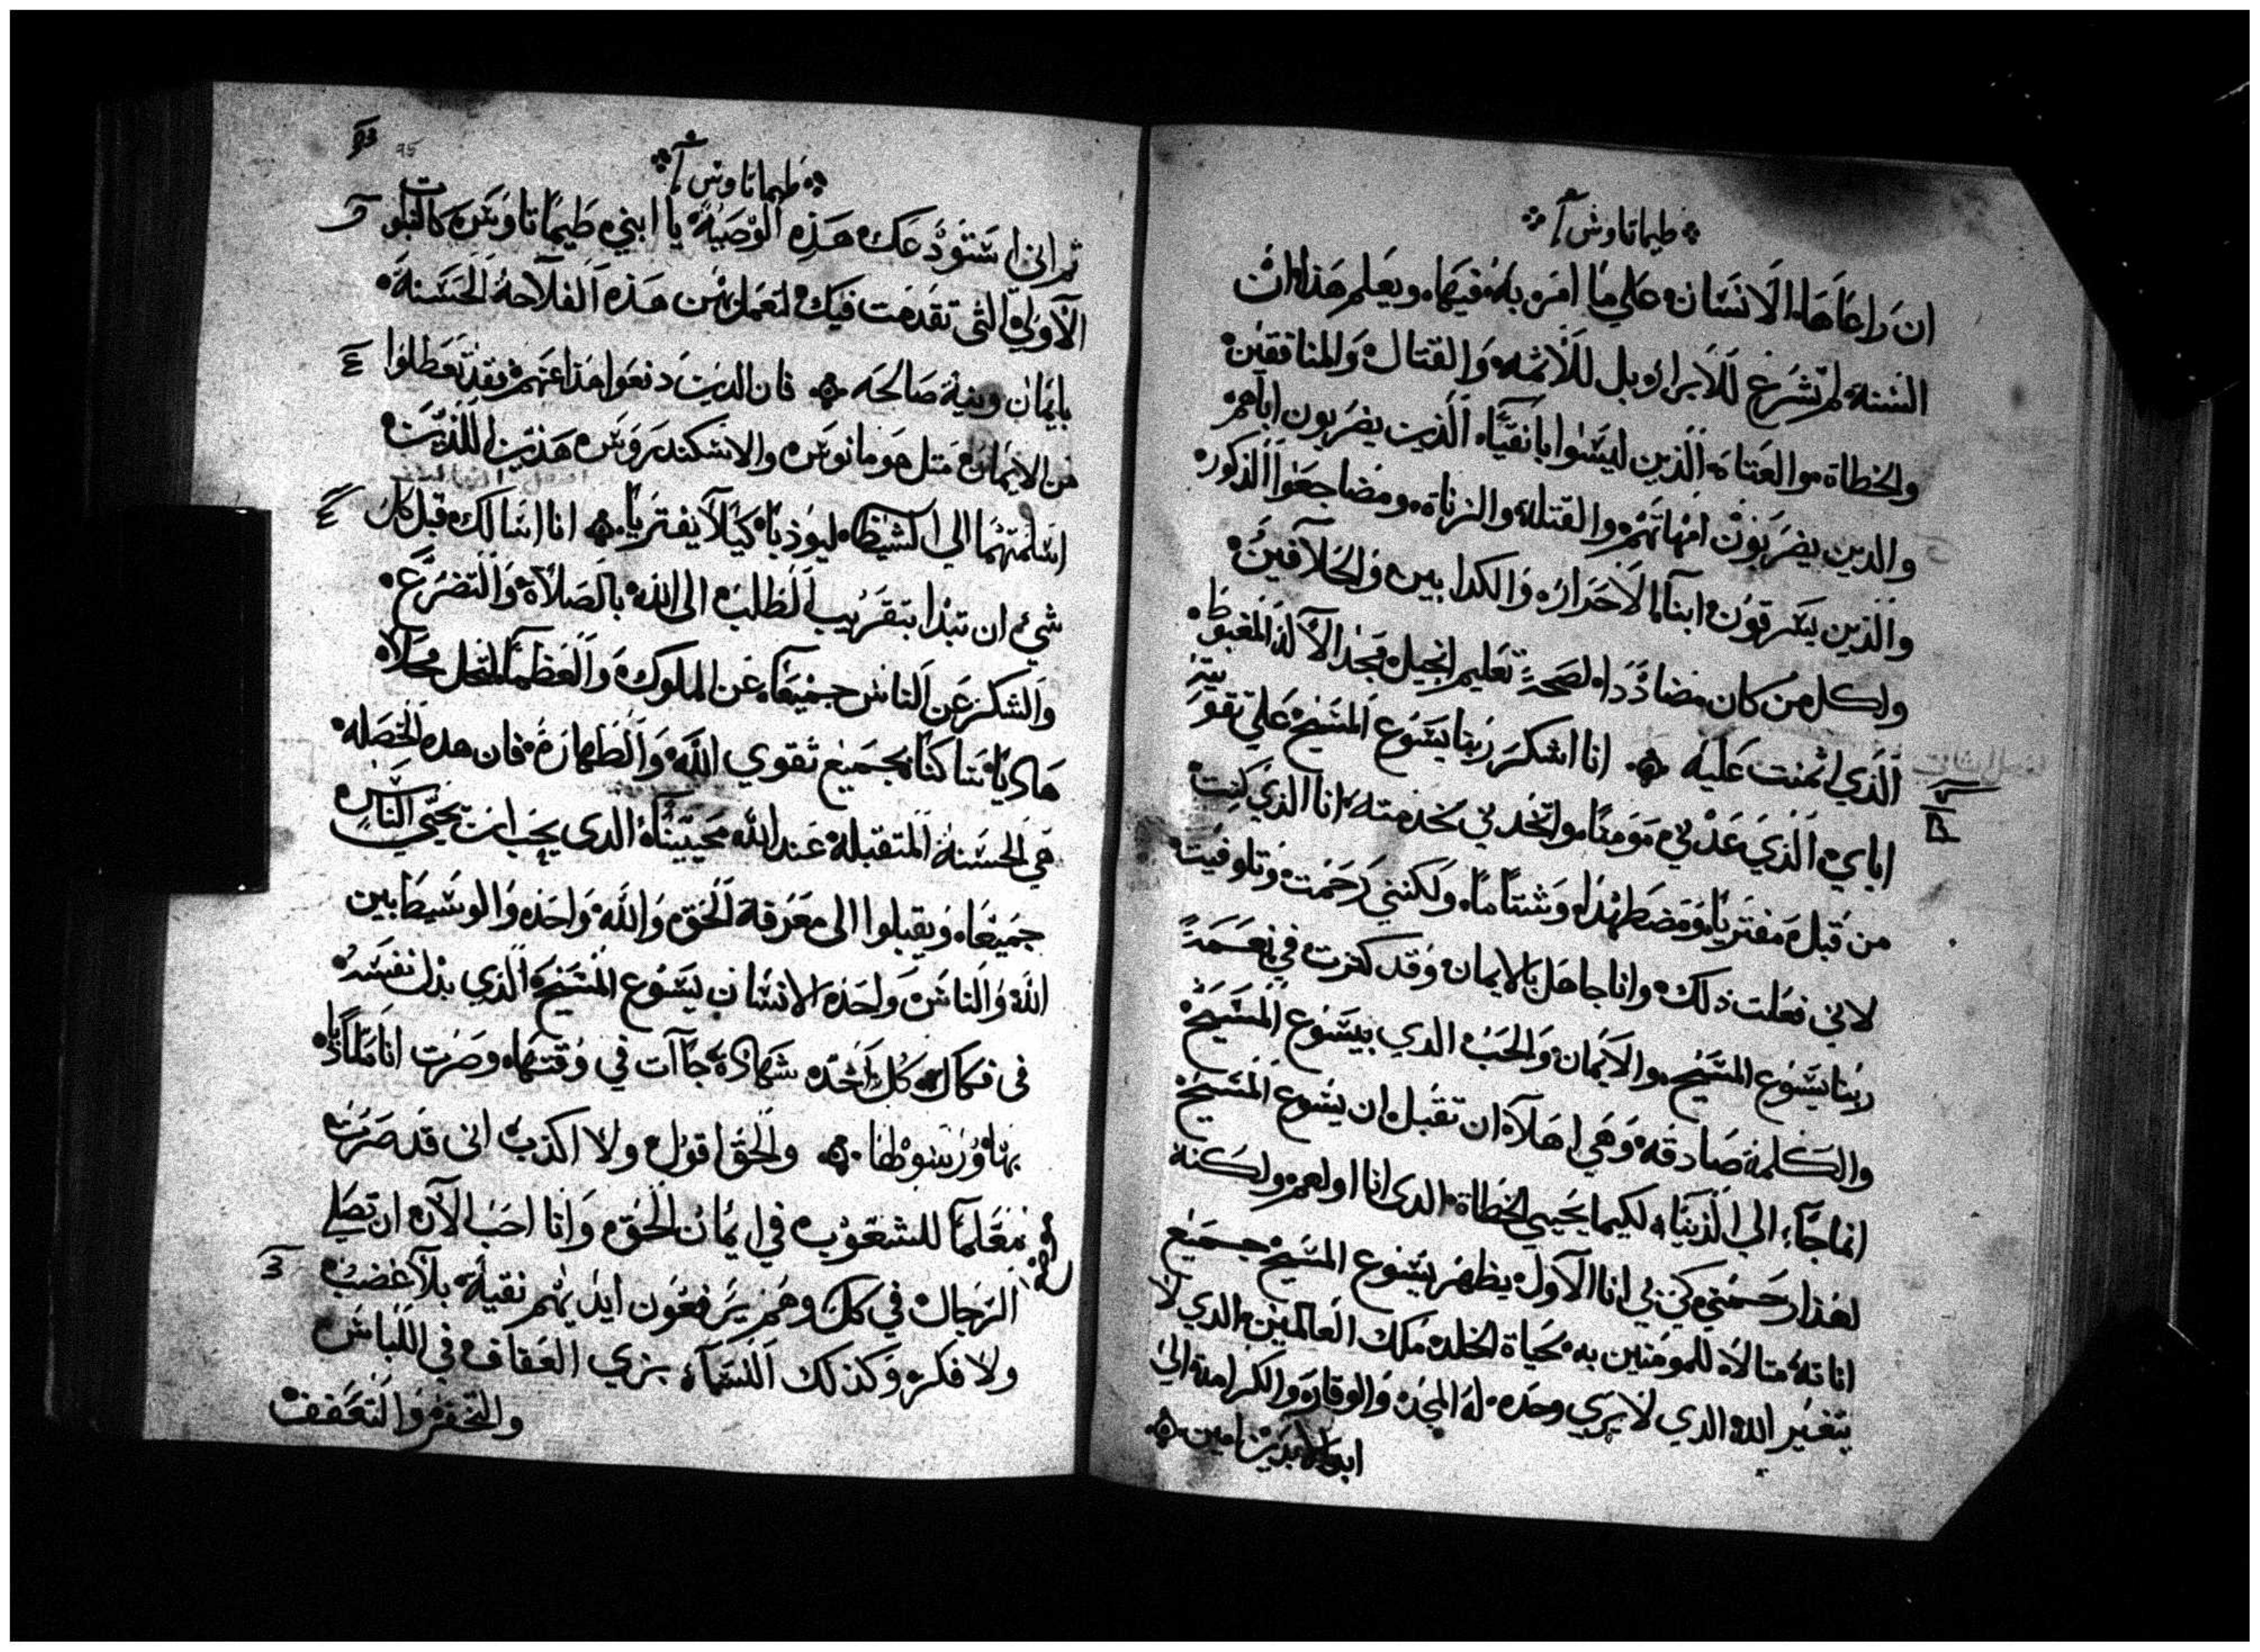 طيماتاوش آ
ان راعاها الانسان علي ما امر به فيها ويعلم هذا ان
السنة لم تشرع للابرار بل للاثمه والقتال والمنافقين
والخطاة والعتاه الذين ليسوا بانقيآء الذين يضربون اباهم
والدين يضربون امهاتهم والقتلة والزناة ومضاجعوا الذكور
والذين يسرقون ابنآء الاحرار والكدابين والحلافين
ولكل من كان مضادًدا لصحة تعليم انجيل مجد الآلة المغبوط
الذي ائتمنت عليه انا اشكر ربنا يسوع المسيح علي تقويته
اياي الذي عدني مومنا واتخدني بخدمته انا الذي كنت
من قبل مفتريا ومضطهدا وشتاما ولكنني رحمت وتلوفيت
لاني فعلت ذلك وانا جاهل بالايمان وقد كترت في نعمة
ربنا يسوع المسيح والايمان والحب الدي بيسوع المسيح
والكلمة صادقه وهي اهلآ ان تقبل ان يسوع المسيح
انما جآء الي الدنيا لكيما يحيي الخطاة الدي انا اولهم ولكنة
لهذا رحمني كي بي انا الاول يظهر يسوع المسيح جميع
اناته متالا للمومنين به بحياة الخلد ملك العالمين الدي لا
يتغير الله الدي لا يري وحده له المجد والوقار والكرامة الي
ابد الابدين امين
طيماتاوش آ
95
ثم اني استودعك هذه الوصية يا ابني طيماتاوس كالنبوت
الاولي التي تقدمت فيك لتعمل بهن هذه الفلاحة الحسنة
بايمان ونية صالحه فان الدين دفعوا هذا عنهم فقد تعطلوا
من الايمان متل هومانوس والاسكندروس هذين اللذين
اسلمتهما الي الشيظا ليوذبا كيلا يفتريا انا اسالك قبل كل
شيء ان تبدا بتقريب الطلب الى الله بالصلاة والتضرع
والشكر عن الناس جميعا عن الملوك والعظمآ لنحل محلا
هاديا ساكنا بجميع تقوي الله والطهارة فان هده الخصله
هي الحسنة المتقبلة عند الله محيينا الدى يحب ان يحيي الناس
جميعا ويقبلوا الى معرفة الحق والله واحد والوسيط بين
الله والناس واحد الانسان يسوع المسيح الذي بدل نفسه
فى فكاك كل احد شهادة جاآت في وقتها وصرت انا منادًيا
بها ورسولها والحق اقول ولا اكذب انى قد صرت
معلما للشعوب في ايمان الحق وانا احب الآن ان تصلي
الرجال في كل وهم يرفعون ايديهم نقية بلا غضب
ولا فكر وكذلك النسآء بزي العفاف في اللباس
والتخفر والتعفف